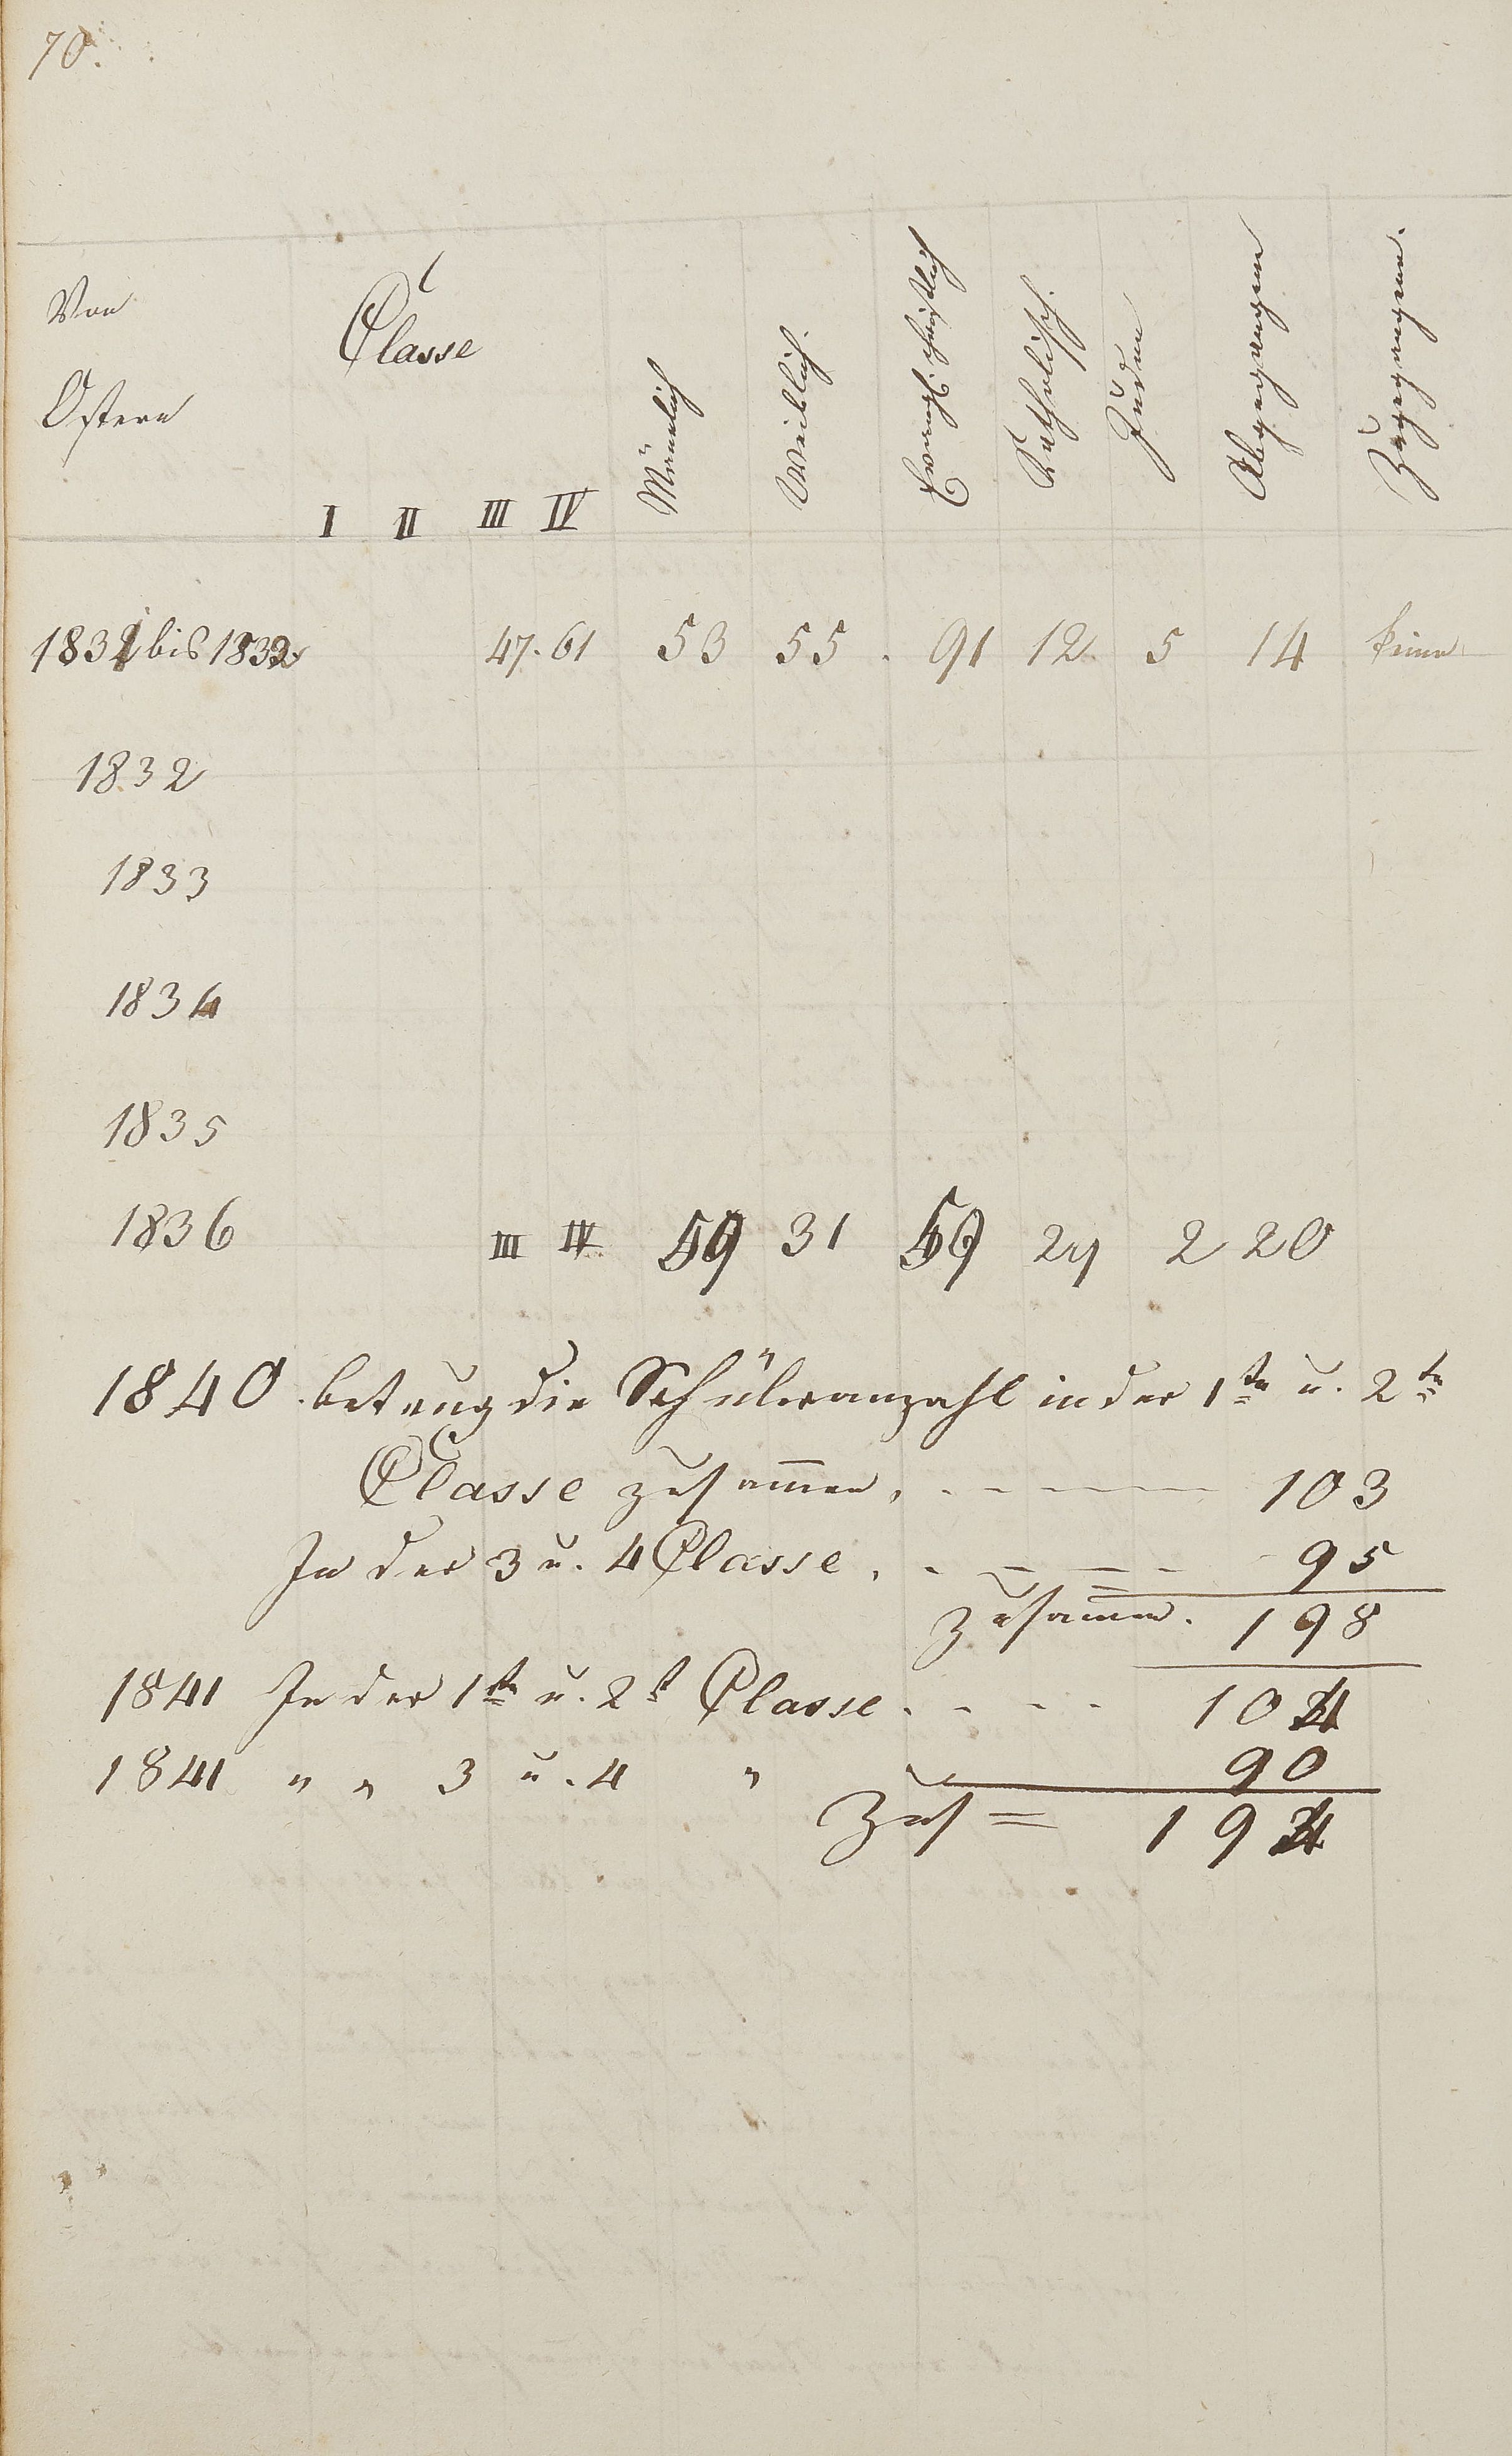 70.
Von
Ostern
Classe
I II III IV
Männlich
Weiblich.
Evangl. christlich
Katholisch.
Juden
Abgegangen
Zugegangen.
1831 bis 1832 47. 61 53 55. 91 12. 5 14 keine
1832
1833
1834
1835
1836 III IV 59 31 59 29 2 20
1840. betrug die Schüleranzahl in der 1te u. 2te
Classe zusammen, - - - - 103
In der 3 u. 4 Classe, - - - - - - 95
Zusammen. 198
1841 In der 1te u. 2t Classe. - - - 104
1841 " " 3 u. 4 " 90
Zus = 194